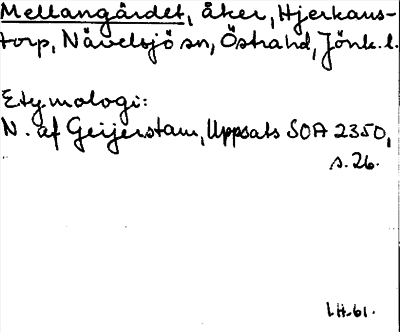 Mellangärdet, åker, Hjerkans-
torp, Nävelsjö sn, Östrahd, Jönk. l.
Etymologi:
N. af Geijerstam, Uppsats SOA 2350,
s. 26.
LH-61.